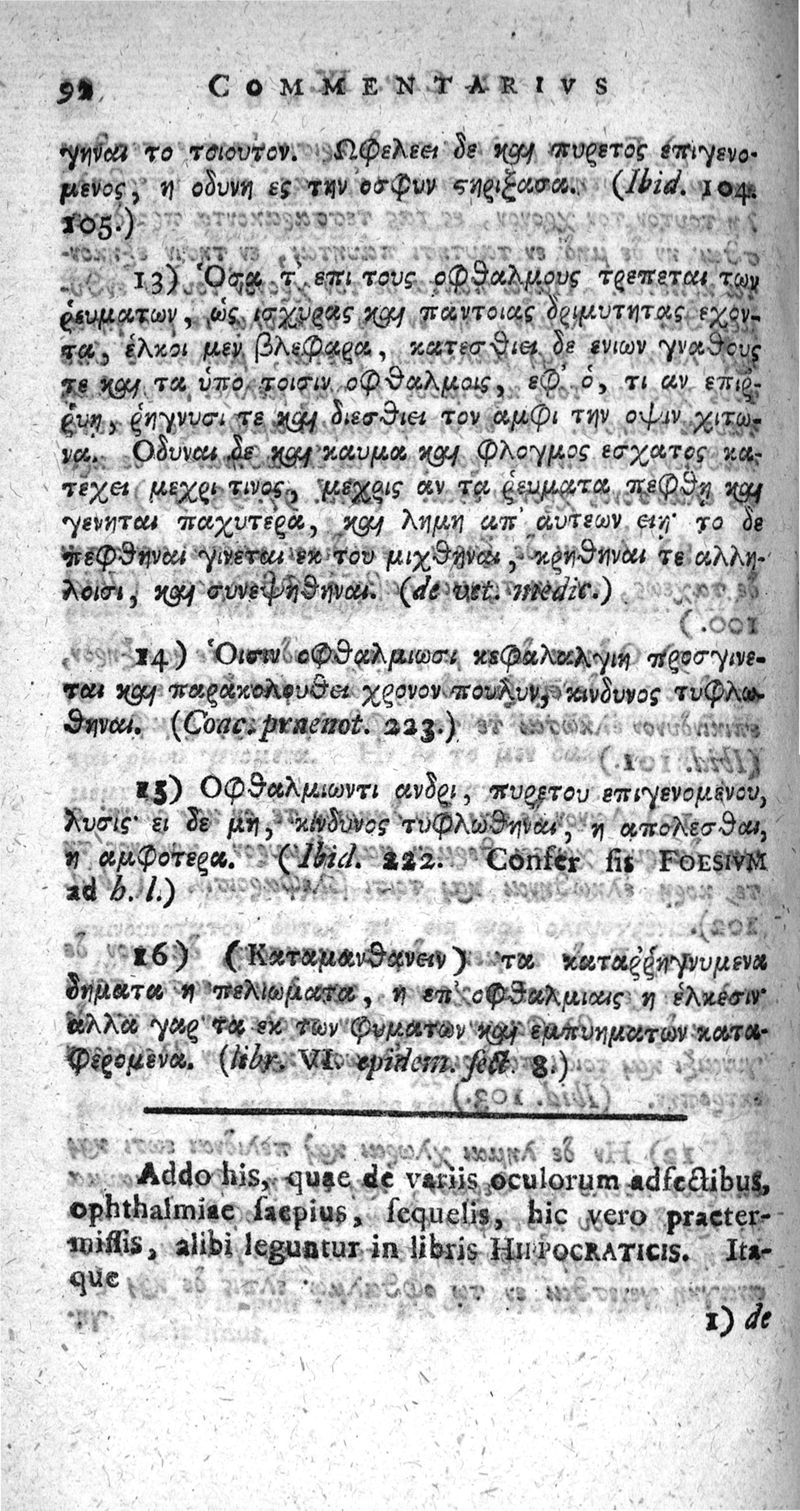 92 COMMENTARIVS
γηναι το τοιουτον. Ωφελεει δε και πυρετος επιγενο-
μενος, η οδυνη ες την οσφυν στηριξασα. (Ibid. 104.
105.)
13) Ὁσα τ' επι τους οφθαλμους τρεπεται των
ῥευματων, ὡς ισχυρας και παντοιας δριμυτητας εχον-
τα, ἑλκοι μεν βλεφαρα, κατεσθιει δε ενιων γναθους
τε και τα ὑπο τοισιν οφθαλμοις, εφ' ὁ, τι αν επιῤ-
ῥυη, ῥηγνυσι τε και διεσθιει τον αμφι την οψιν χιτω-
να. Οδυναι δε και καυμα και φλογμος εσχατος κα-
τεχει μεχρι τινος, μεχρις αν τα ῥευματα πεφθη και
γενηται παχυτερα, και λημη απ' αυτεων ειη· το δε
πεφθηναι γινεται εκ του μιχθηναι, κρηθηναι τε αλλη-
λοισι, και συνεψηθηναι. (de vet. medic.)
14) Ὁισιν οφθαλμιωσι κεφαλαλγιη προσγινε-
ται και παρακολουθει χρονον πουλυν, κινδυνος τυφλω-
θηναι. (Coac. praenot. 223.)
15) Οφθαλμιωντι ανδρι, πυρετου επιγενομενου,
λυσις· ει δε μη, κινδυνος τυφλωθηναι, η απολεσθαι,
η αμφοτερα. (Ibid. 222. Confer ſis FOESIVM
ad h. l.)
16) (Καταμανθανειν) τα καταῤῥηγνυμενα
δηματα η πελιωματα, η επ' οφθαλμιαις η ἑλκεσιν·
αλλα γαρ τα εκ των φυματων και εμπυηματων κατα-
φερομενα. (libr. VI. epidem. ſect. 8.)
Addo his, quae de variis oculorum adfectibus,
ophthalmiae ſaepius, ſequelis, hic vero praeter-
miſſis, alibi leguntur in libris HIPPOCRATICIS. Ita-
que
1) de